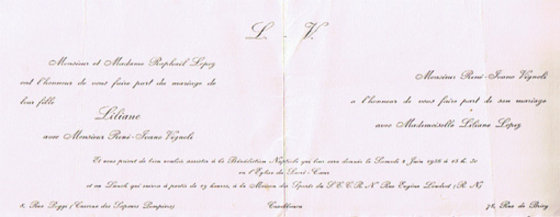 L - V.
Monsieur et Madame Raphaël Lopez
ont l'honneur de vous faire part du mariage de
leur fille
Liliane
avec Monsieur René-Ivano Vignoli
Monsieur René-Ivano Vignoli
a l'honneur de vous faire part de son mariage
avec Mademoiselle Liliane Lopez
Et vous prient de bien vouloir assister à la Bénédiction Nuptiale qui leur sera donnée le Samedi 2 Juin 1956 à
en l'Eglise du Sacré-Cœur
et au Lunch qui suivra à partir de 19 heures, à la Maison des Sports du Rue Eugène
8, Rue Poggi (Caserne des Sapeurs Pompiers)
Casablanca
78, Rue de